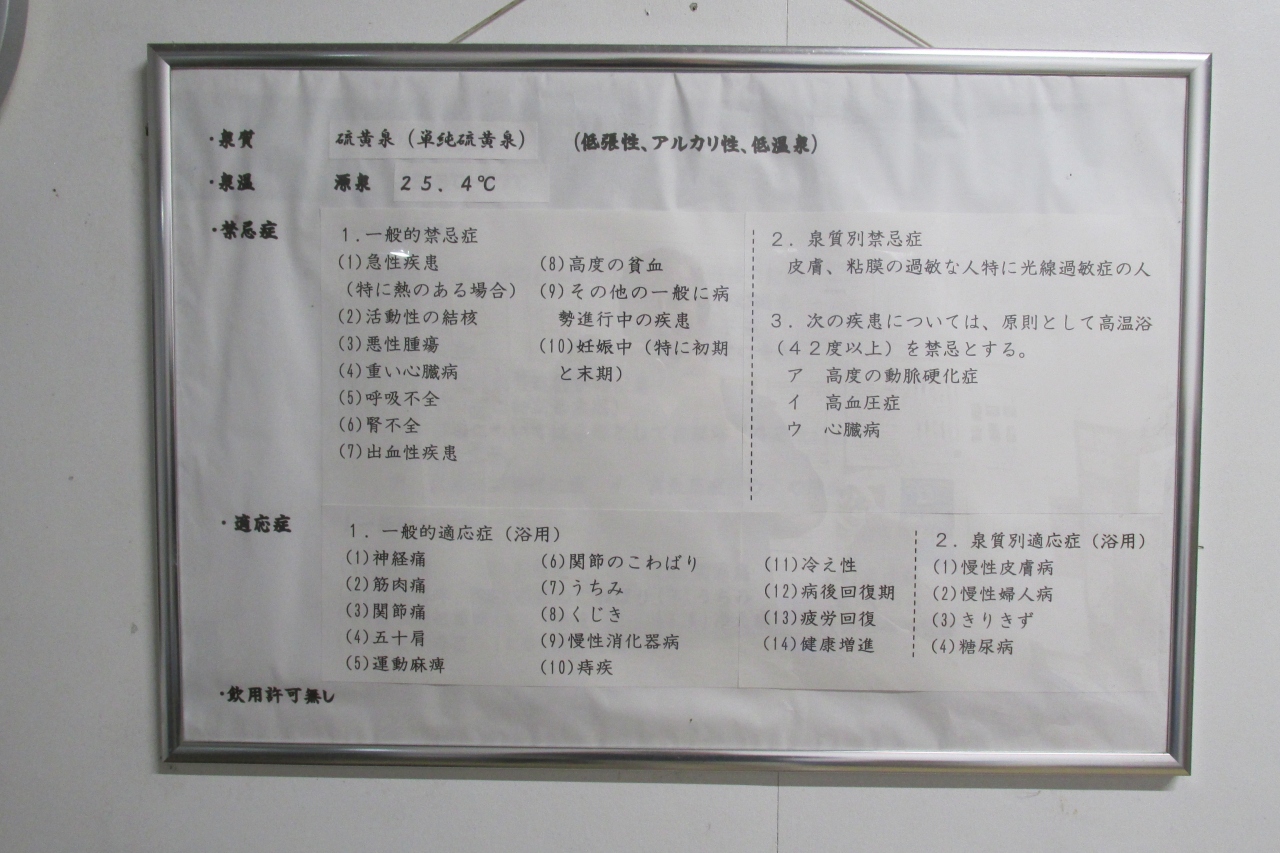 ・泉質 硫黄泉（単純硫黄泉） （低張性、アルカリ性、低温泉）
・泉温 源泉 ２５．４℃
・禁忌症
１．一般的禁忌症
(1)急性疾患
（特に熱のある場合）
(2)活動性の結核
(3)悪性腫瘍
(4)重い心臓病
(5)呼吸不全
(6)腎不全
(7)出血性疾患
(8)高度の貧血
(9)その他の一般に病
勢進行中の疾患
(10)妊娠中（特に初期
と末期）
２．泉質別禁忌症
皮膚、粘膜の過敏な人特に光線過敏症の人
３．次の疾患については、原則として高温浴
（４２度以上）を禁忌とする。
ア 高度の動脈硬化症
イ 高血圧症
ウ 心臓病
・適応症
１．一般的適応症（浴用）
(1)神経痛
(2)筋肉痛
(3)関節痛
(4)五十肩
(5)運動麻痺
(6)関節のこわばり
(7)うちみ
(8)くじき
(9)慢性消化器病
(10)痔疾
(11)冷え性
(12)病後回復期
(13)疲労回復
(14)健康増進
２．泉質別適応症（浴用）
(1)慢性皮膚病
(2)慢性婦人病
(3)きりきず
(4)糖尿病
・飲用許可無し